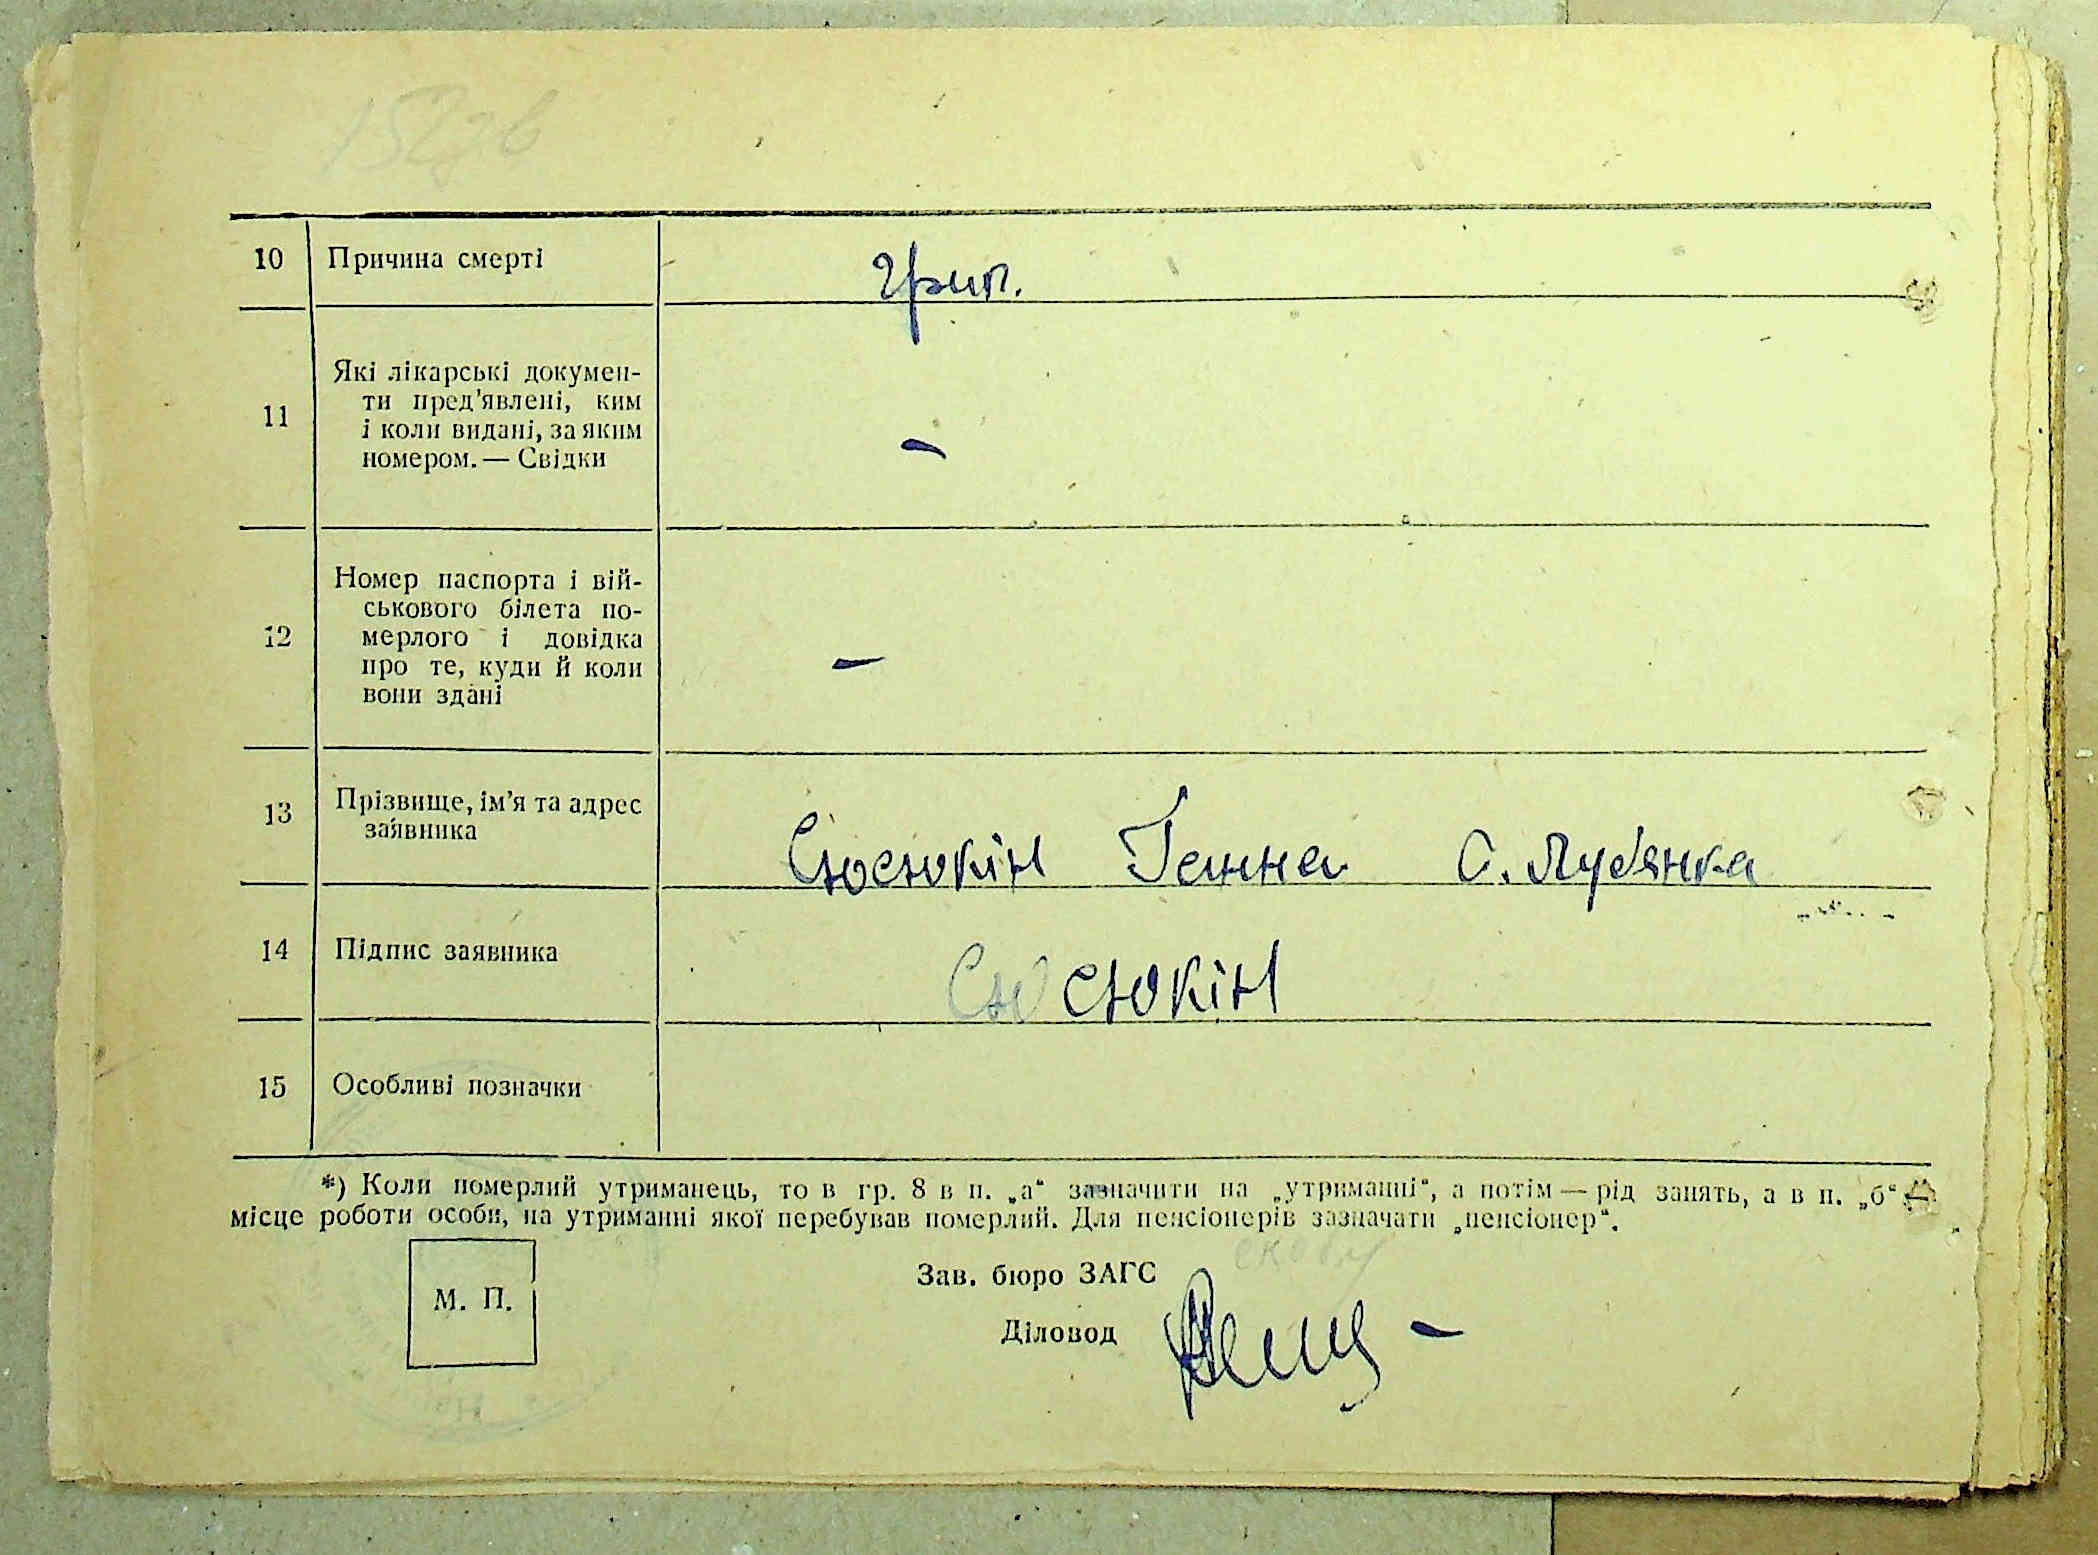 10 Причина смерті грип.
11 Які лікарські докумен-
ти пред'явлені, ким
і коли видані, за яким
номером. — Свідки –
12 Номер паспорта і вій-
ськового білета по-
мерлого і довідка
про те, куди й коли
вони здані –
13 Прізвище, ім'я та адрес
заявника Сюсюкін Ганна с. Лубянка
14 Підпис заявника Сюсюкін
15 Особливі позначки
*) Коли померлий утриманець, то в гр. 8 в п. „а“ зазначити на „утриманні“, а потім — рід занять, а в п. „б“ —
місце роботи особи, на утриманні якої перебував померлий. Для пенсіонерів зазначати „пенсіонер“.
М. П.
Зав. бюро ЗАГС
Діловод